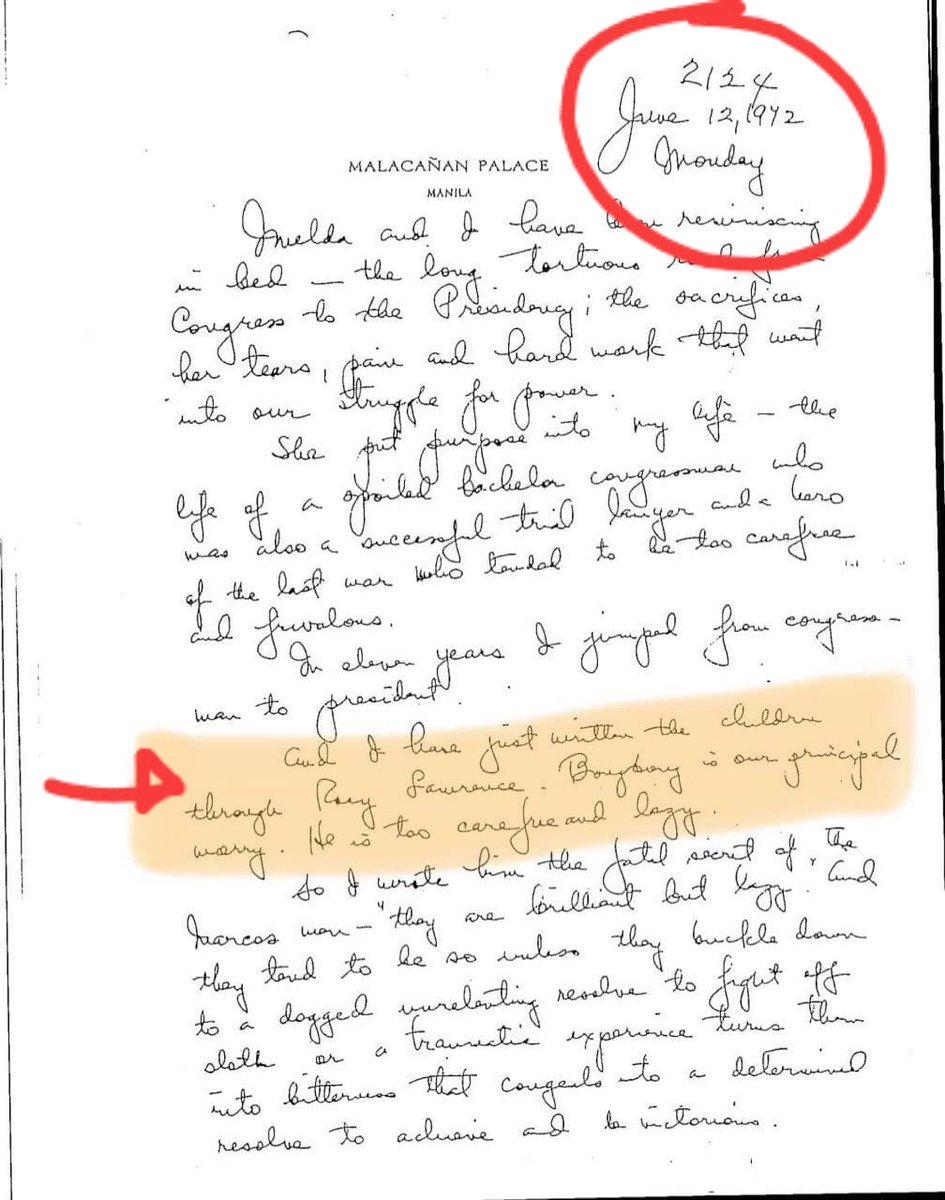 2124
June 12, 1972
Monday
MALACAÑAN PALACE
MANILA
Imelda and I have been reminiscing
in bed – the long tortuous road from
Congress to the Presidency; the sacrifices,
her tears, pain and hard work that went
into our struggle for power.
She put purpose into my life – the
life of a spoiled bachelor congressman who
was also a successful trial lawyer and a hero
of the last war who tended to be too carefree
and frivolous.
In eleven years I jumped from congress-
man to president.
And I have just written the children
through Rosy Lawrence. Bongbong is our principal
worry. He is too carefree and lazy.
So I wrote him the fatal secret of the
Marcos men – "they are brilliant but lazy. And
they tend to be so unless they buckle down
to a dogged unrelenting resolve to fight off
sloth or a traumatic experience turns them
into bitterness that congeals into a determined
resolve to achieve and be victorious.